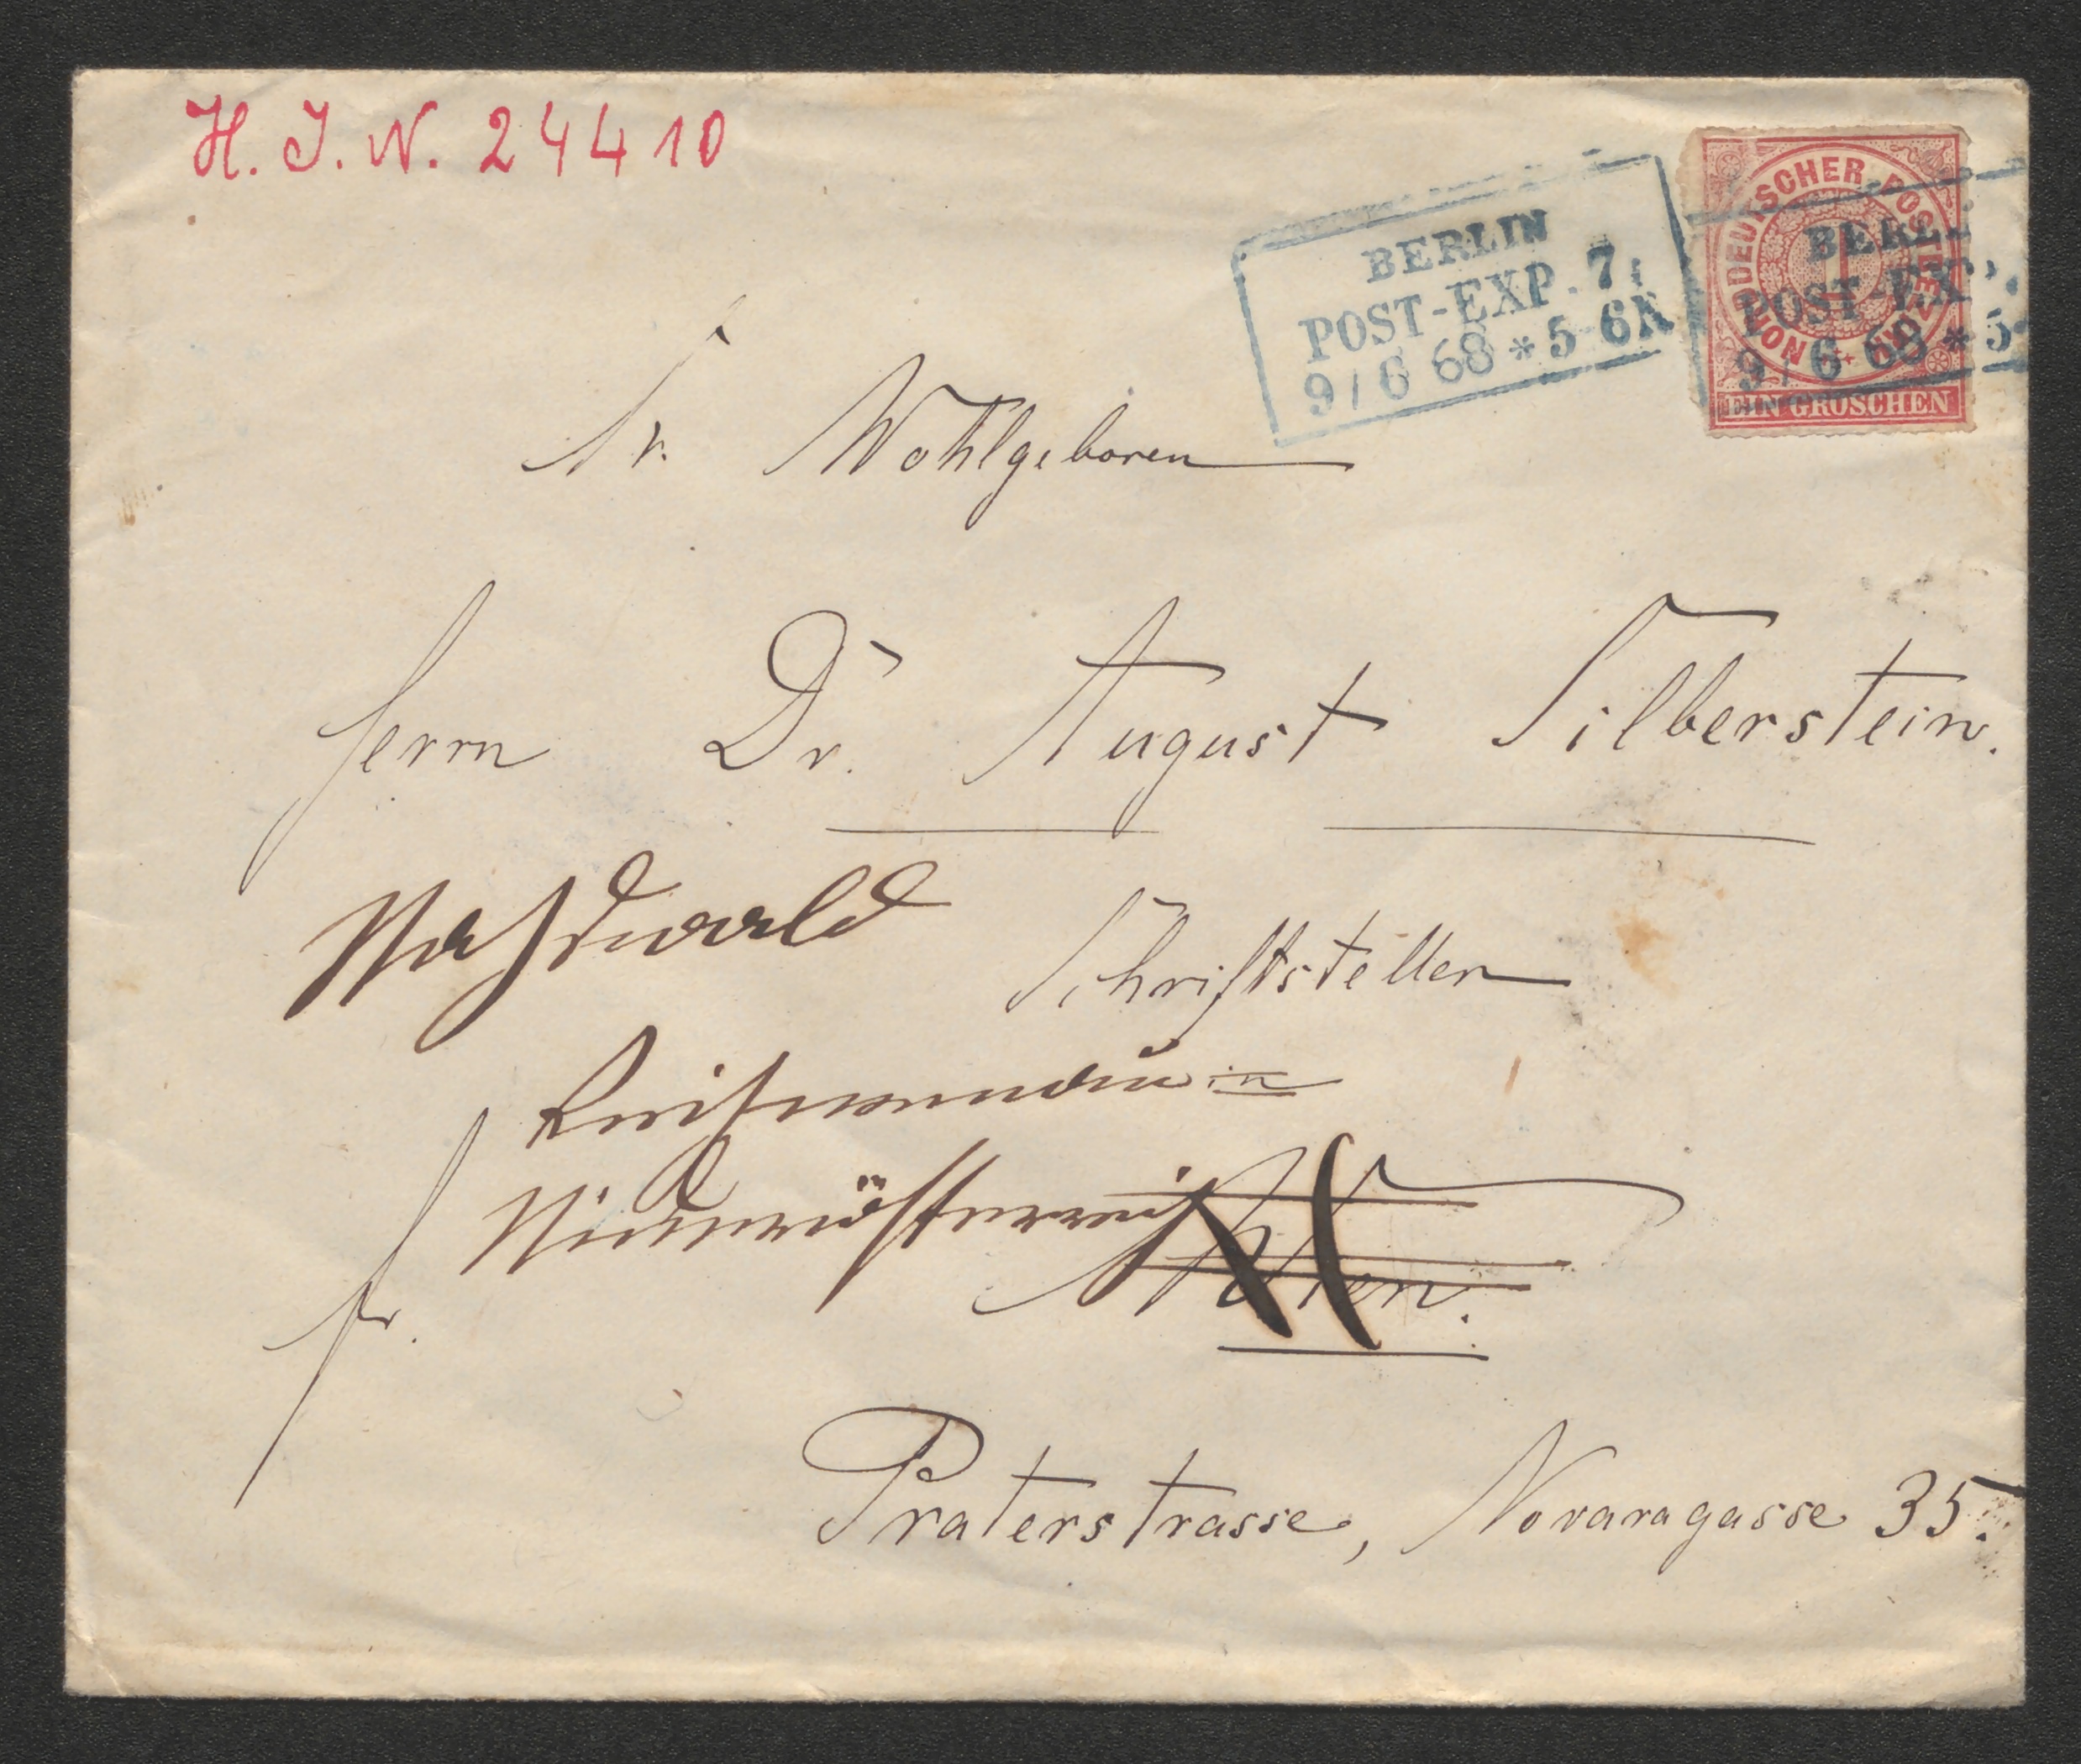 H. J. N. 24410
BERLIN
POST-EXP. 7.
9/6 68 * 5-6N
NORDDEUTSCHER POSTBEZIRK
1
EIN GROSCHEN
BERLIN
POST-EXP.
9/6 68 * 5-
Sr. Wohlgeboren
Herrn Dr. August Silberstein.
Naßwald
Schriftsteller
Reichenau in
Niederösterreich
Wien.
fr.
Praterstrasse, Novaragasse 35.